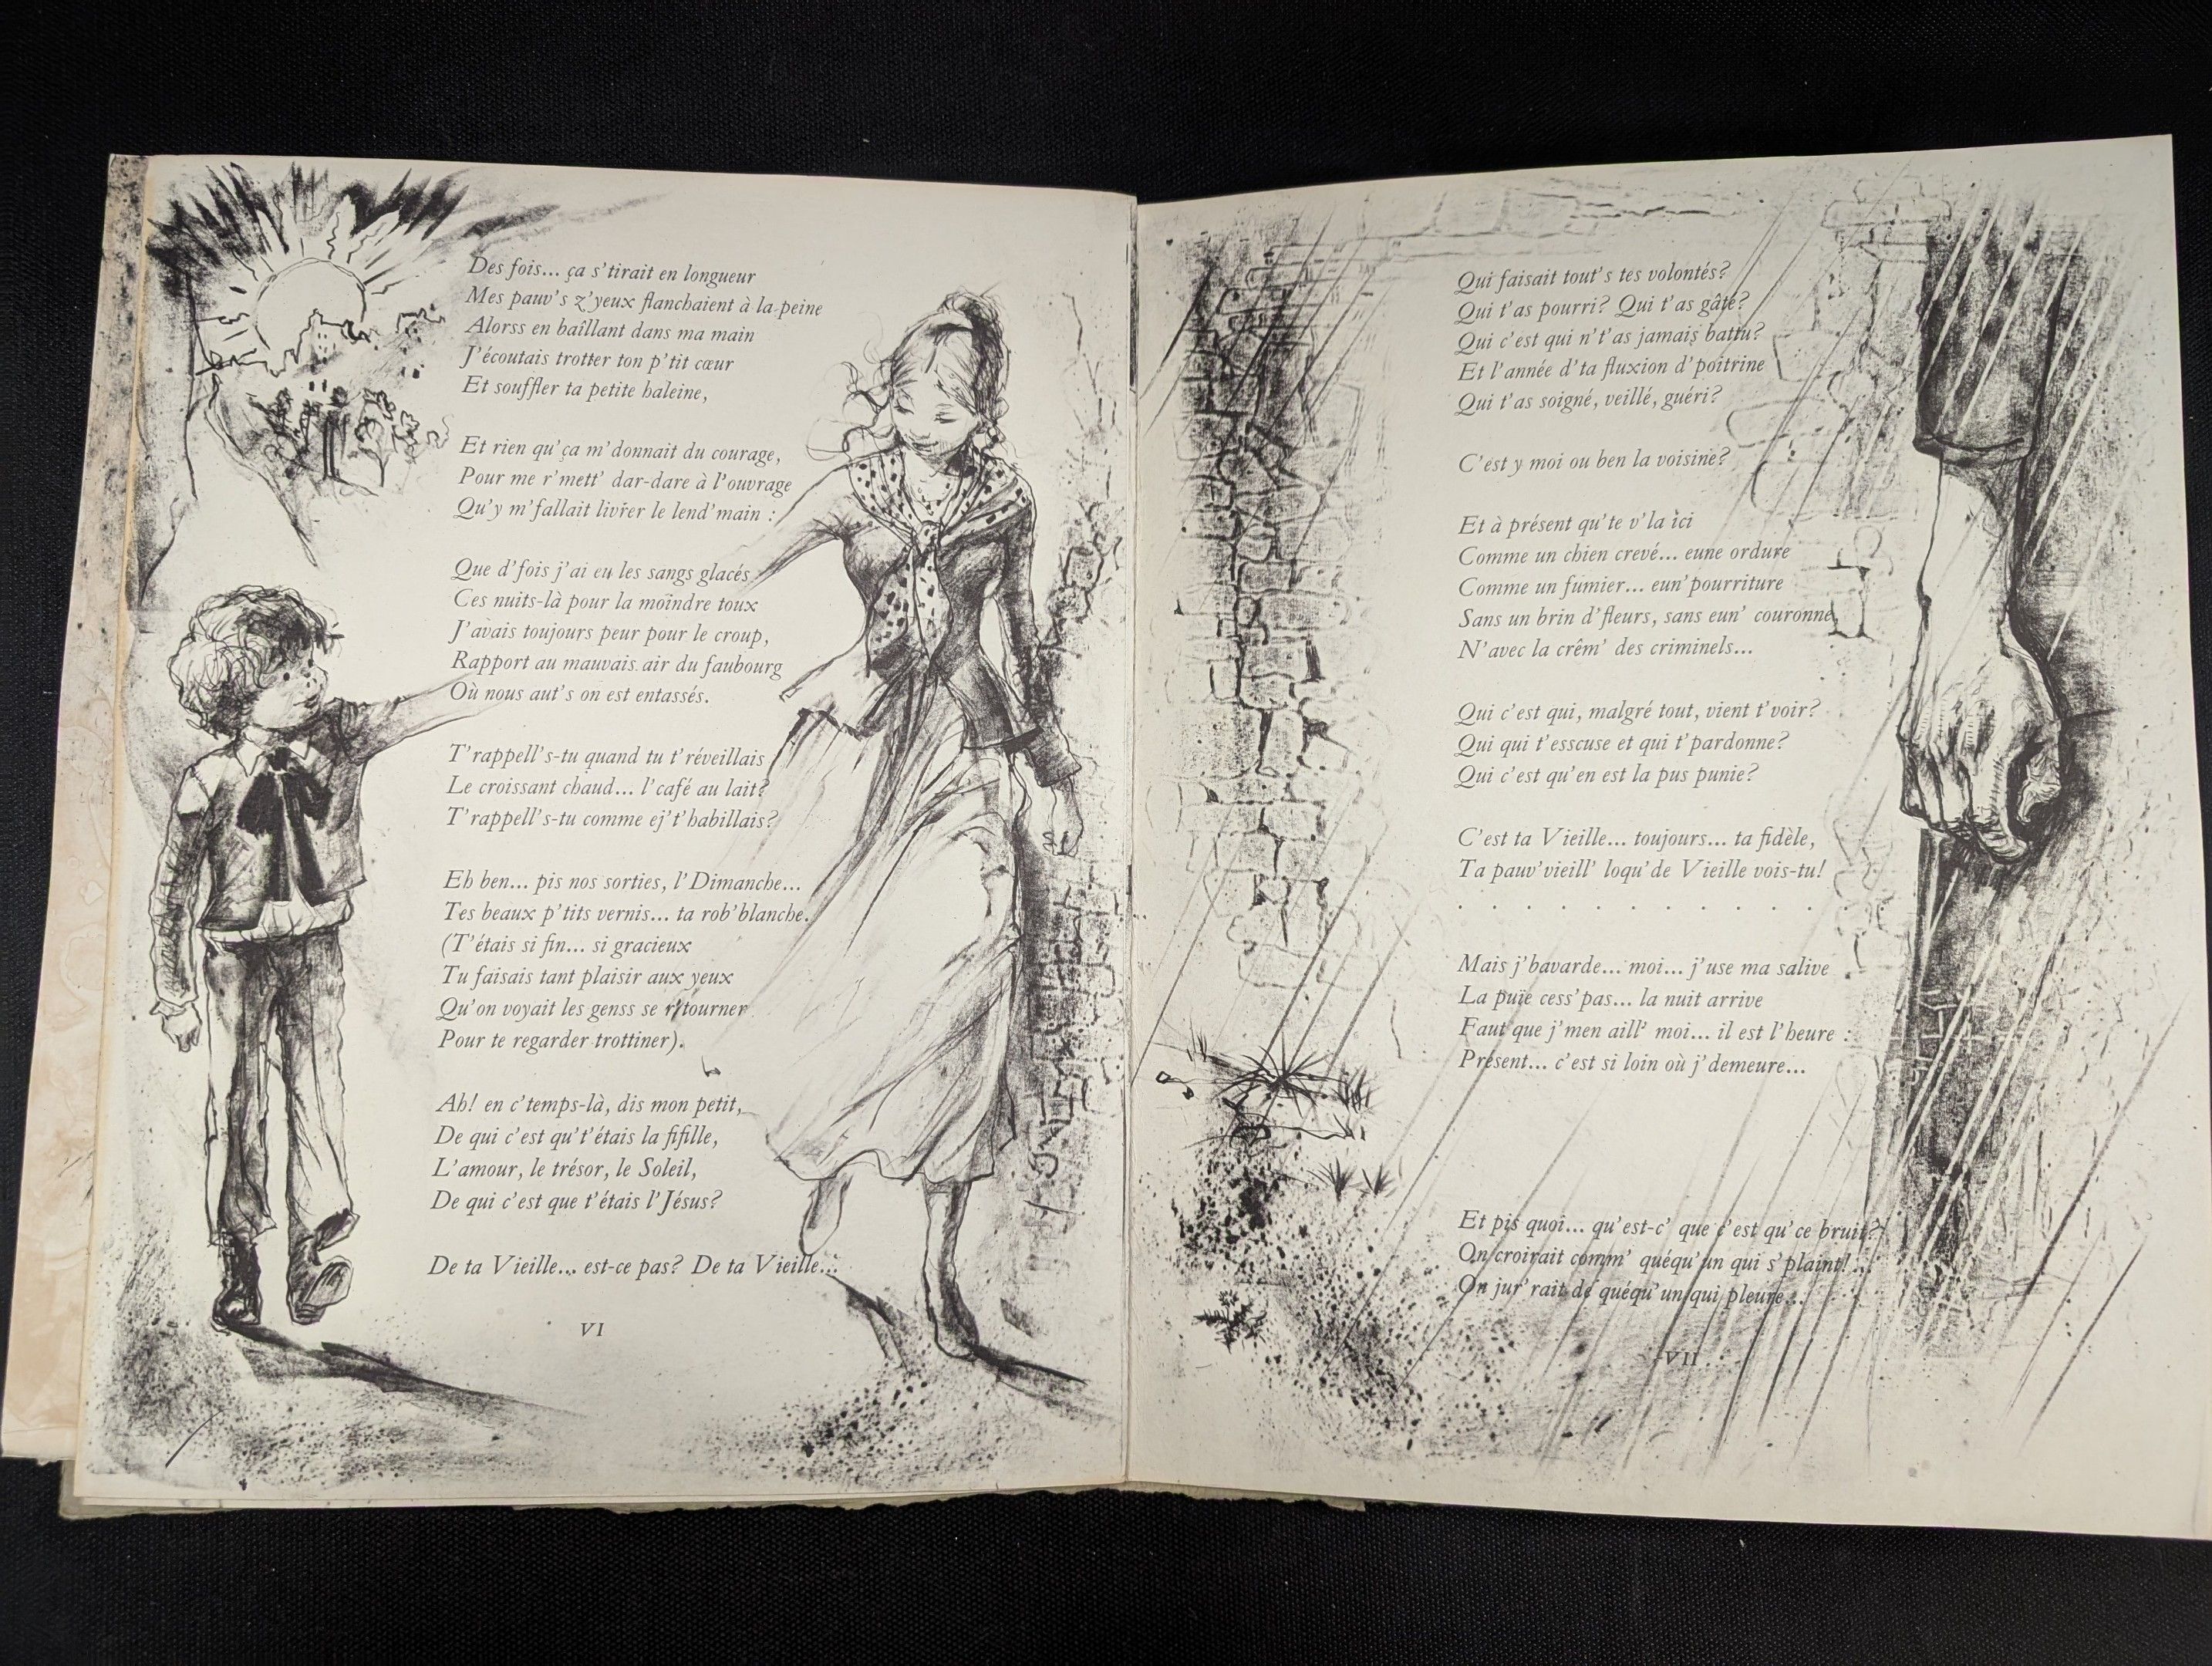 Des fois... ça s'tirait en longueur
Mes pauv's z'yeux flanchaient à la peine
Alorss en baîllant dans ma main
J'écoutais trotter ton p'tit cœur
Et souffler ta petite haleine,
Et rien qu'ça m'donnait du courage,
Pour me r'mett' dar-dare à l'ouvrage
Qu'y m'fallait livrer le lend'main :
Que d'fois j'ai eu les sangs glacés
Ces nuits-là pour la moindre toux
J'avais toujours peur pour le croup,
Rapport au mauvais air du faubourg
Où nous aut's on est entassés.
T'rappell's-tu quand tu t'réveillais
Le croissant chaud... l'café au lait?
T'rappell's-tu comme ej't'habillais?
Eh ben... pis nos sorties, l'Dimanche...
Tes beaux p'tits vernis... ta rob'blanche.
(T'étais si fin... si gracieux
Tu faisais tant plaisir aux yeux
Qu'on voyait les genss se r'tourner
Pour te regarder trottiner).
Ah! en c'temps-là, dis mon petit,
De qui c'est qu't'étais la fifille,
L'amour, le trésor, le Soleil,
De qui c'est que t'étais l'Jésus?
De ta Vieille... est-ce pas? De ta Vieille...
VI
Qui faisait tout's tes volontés?
Qui t'as pourri? Qui t'as gâté?
Qui c'est qui n't'as jamais battu?
Et l'année d'ta fluxion d'poitrine
Qui t'as soigné, veillé, guéri?
C'est y moi ou ben la voisine?
Et à présent qu'te v'la ici
Comme un chien crevé... eune ordure
Comme un fumier... eun'pourriture
Sans un brin d'fleurs, sans eun' couronne,
N'avec la crêm' des criminels...
Qui c'est qui, malgré tout, vient t'voir?
Qui qui t'esscuse et qui t'pardonne?
Qui c'est qu'en est la pus punie?
C'est ta Vieille... toujours... ta fidèle,
Ta pauv'vieill' loqu'de Vieille vois-tu!
. . . . . . . . . . . .
Mais j'bavarde... moi... j'use ma salive
La puïe cess'pas... la nuit arrive
Faut que j'men aill' moi... il est l'heure :
Présent... c'est si loin où j'demeure...
Et pis quoi... qu'est-c' que c'est qu'ce bruit?
On croirait comm' quéqu'un qui s'plaint!...
On jur'rait de quéqu'un qui pleure...
VII